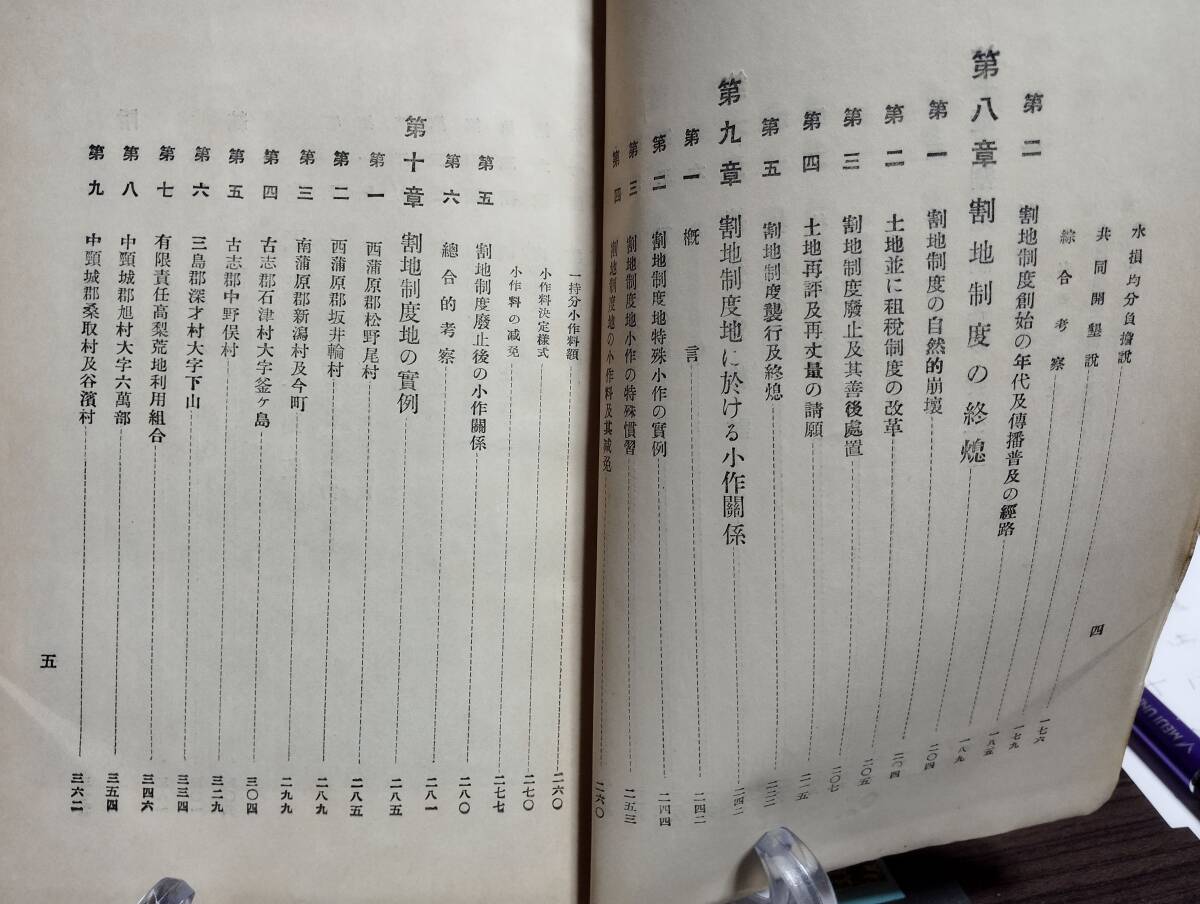 水損均分負擔說 一七六
共同開墾說 一七九
綜合考察 一八五
第二 割地制度創始の年代及傳播普及の經路 一八九
第八章 割地制度の終熄 二〇四
第一 割地制度の自然的崩壞 二〇四
第二 土地並に租稅制度の改革 二〇五
第三 割地制度廢止及其善後處置 二〇七
第四 土地再評及再丈量の請願 二一五
第五 割地制度襲行及終熄 二二二
第九章 割地制度地に於ける小作關係 二四二
第一 槪言 二四二
第二 割地制度地特殊小作の實例 二四四
第三 割地制度地小作の特殊慣習 二五三
第四 割地制度地の小作料及其減免 二六〇
四
一持分小作料額 二六〇
小作料決定樣式 二七〇
小作料の減免 二七七
第五 割地制度廢止後の小作關係 二八〇
第六 總合的考察 二八一
第十章 割地制度地の實例 二八五
第一 西蒲原郡松野尾村 二八五
第二 西蒲原郡坂井輪村 二八九
第三 南蒲原郡新潟村及今町 二九九
第四 古志郡石津村大字釜ヶ島 三〇四
第五 古志郡中野俣村 三二九
第六 三島郡深才村大字下山 三三四
第七 有限責任高梨荒地利用組合 三四六
第八 中頸城郡旭村大字六萬部 三五四
第九 中頸城郡桑取村及谷濱村 三六二
五